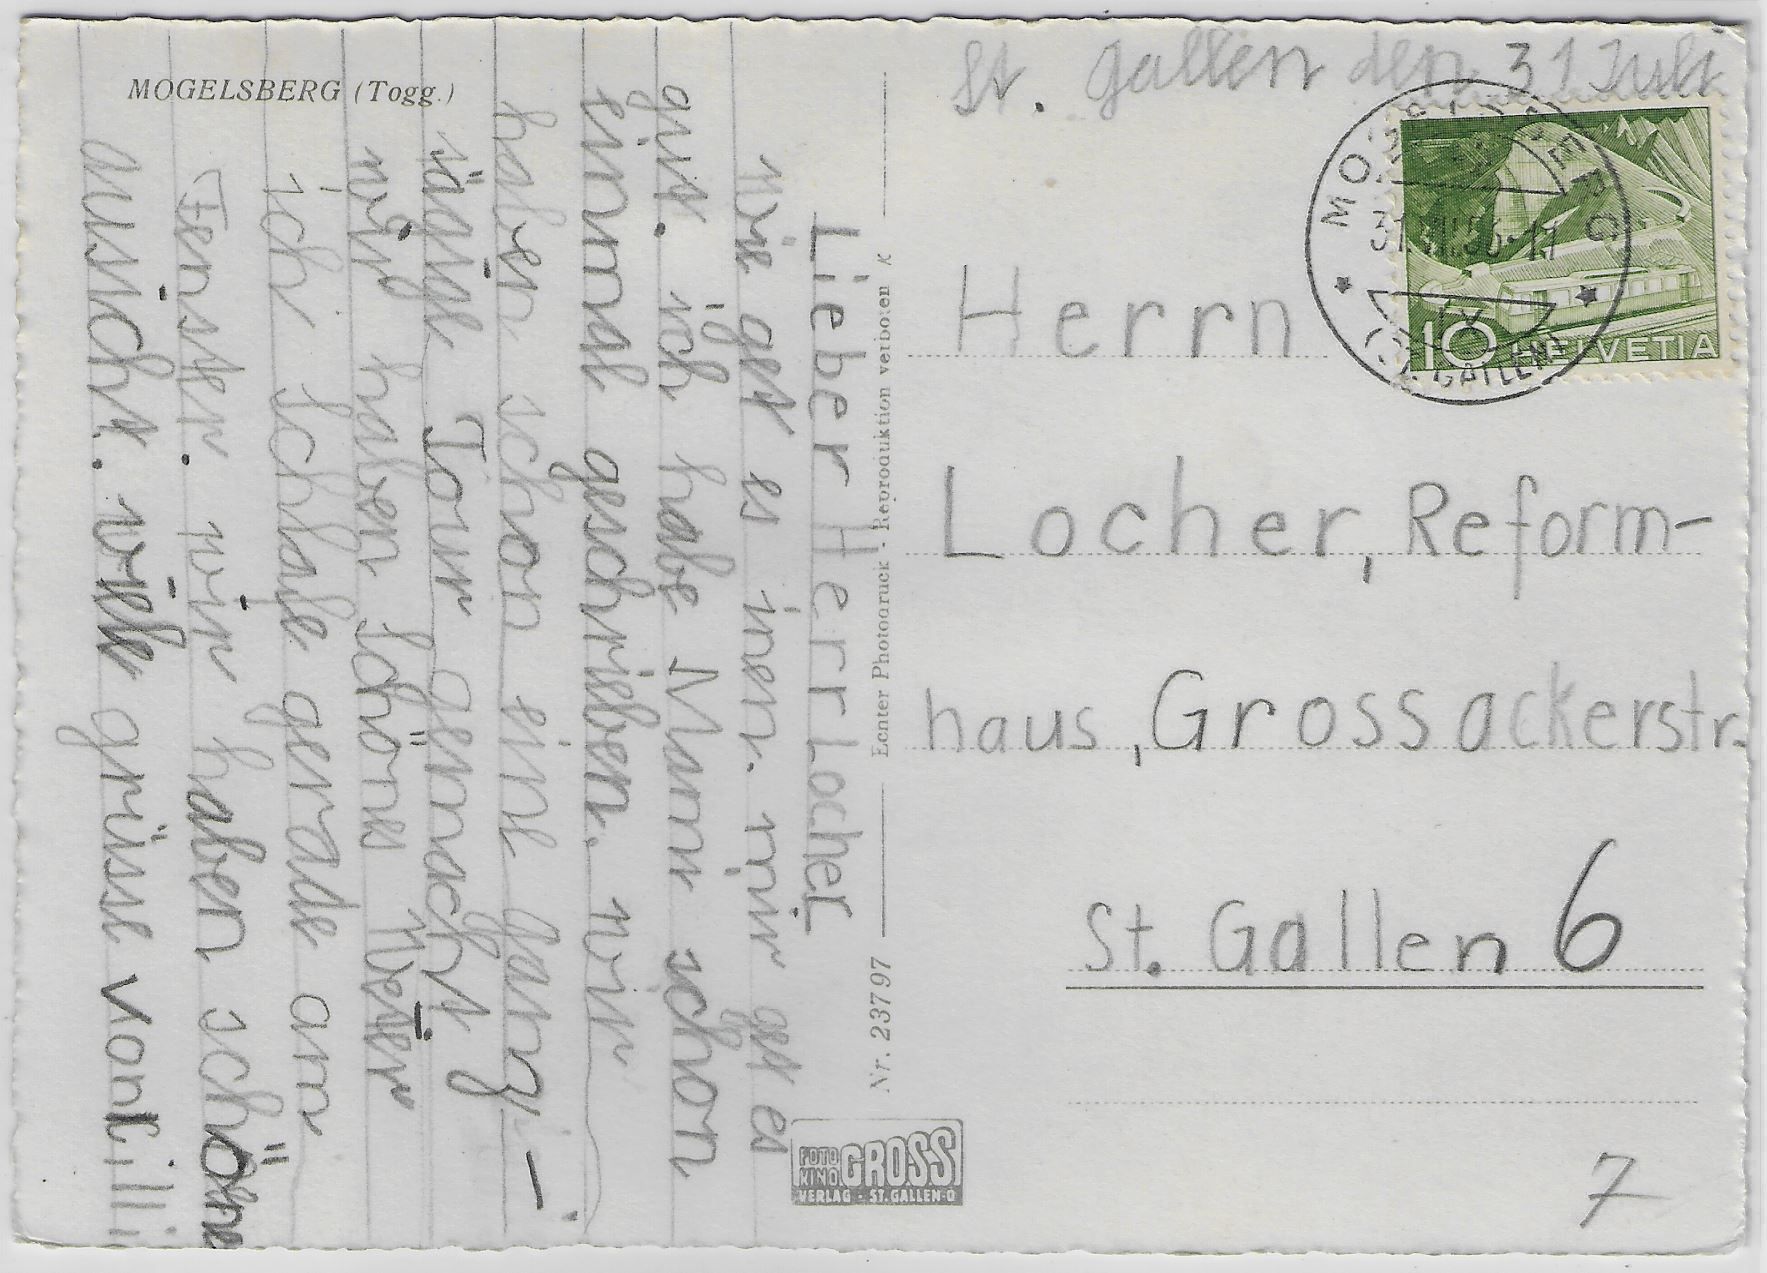 MOGELSBERG (Togg.)
St. Gallen den 31 Juli
Lieber Herr Locher
wie get es inen. mir get es
gut. ich habe Mamr schon
einmal geschrieben. wir
haben schon eine ganz-
tägige Tour gemacht
wir haben Schönes Weter
ich Schlafe gerade am
Fenster. wir haben schöne
ausicht. viele grüsse von Lilli
Echter Photodruck - Reproduktion verboten K
Nr. 23797
FOTO KINO GROSS
VERLAG - ST. GALLEN-O
MOGELSBERG
31.VII.56-11
(ST. GALLEN)
10 HELVETIA
Herrn
Locher, Reform-
haus, Grossackerstr.
St. Gallen 6
7